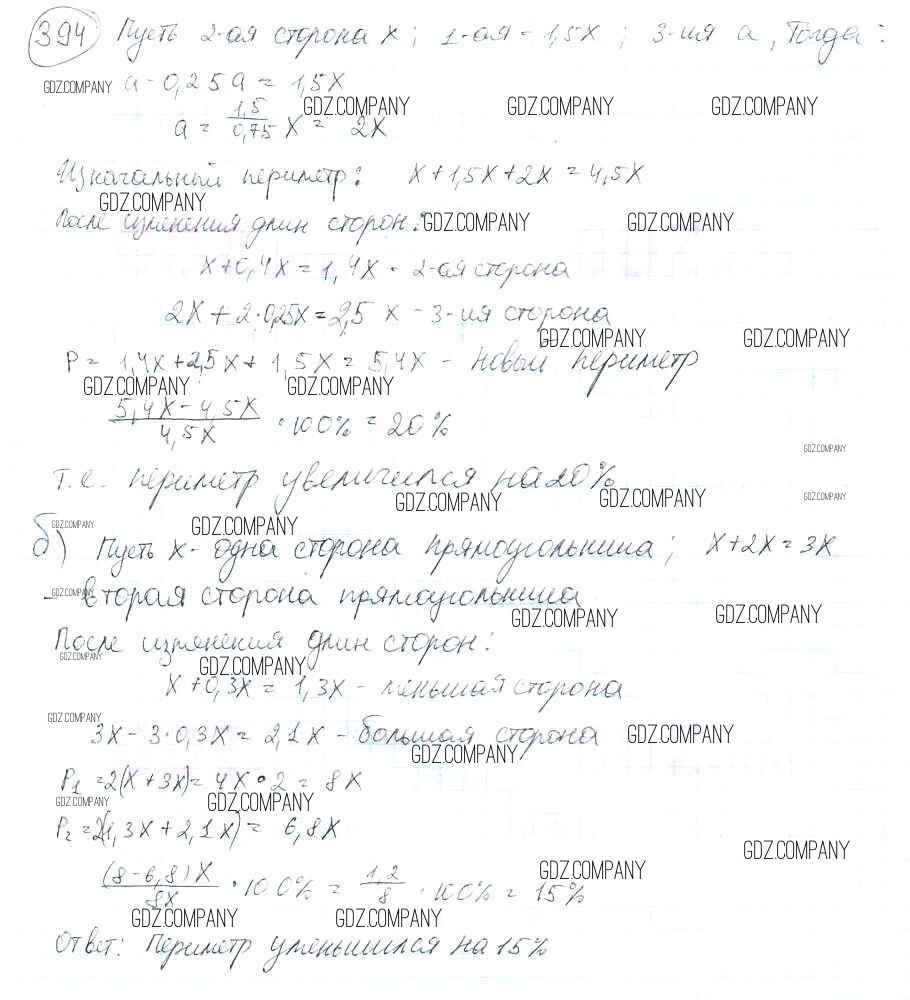 394 Пусть 2-ая сторона x; 1-ая - 1,5x; 3-ия a, Тогда:
GDZ.COMPANY a - 0,25a = 1,5x
GDZ.COMPANY GDZ.COMPANY GDZ.COMPANY
a = 1,5/0,75 x = 2x
Изначальный периметр: x+1,5x+2x=4,5x
GDZ.COMPANY
После изменения длин сторон: GDZ.COMPANY GDZ.COMPANY
x+0,4x=1,4x - 2-ая сторона
2x+2·0,25x=2,5x - 3-ия сторона
GDZ.COMPANY GDZ.COMPANY
P = 1,4x+2,5x+1,5x=5,4x - новый периметр
GDZ.COMPANY GDZ.COMPANY
5,4x-4,5x/4,5x ·100%=20%
GDZ.COMPANY
т.е. периметр увеличился на 20%
GDZ.COMPANY GDZ.COMPANY GDZ.COMPANY
GDZ.COMPANY GDZ.COMPANY
б) Пусть x - одна сторона прямоугольника; x+2x=3x
GDZ.COMPANY
- вторая сторона прямоугольника
GDZ.COMPANY GDZ.COMPANY
После изменения длин сторон:
GDZ.COMPANY GDZ.COMPANY
x+0,3x=1,3x - меньшая сторона
GDZ.COMPANY
3x-3·0,3x=2,1x - большая сторона GDZ.COMPANY
GDZ.COMPANY
P1=2(x+3x)=4x·2=8x
GDZ.COMPANY GDZ.COMPANY
P2=2(1,3x+2,1x)=6,8x
GDZ.COMPANY
(8-6,8)x/8x ·100%=1,2/8 ·100%=15%
GDZ.COMPANY
GDZ.COMPANY GDZ.COMPANY
Ответ: Периметр уменьшился на 15%